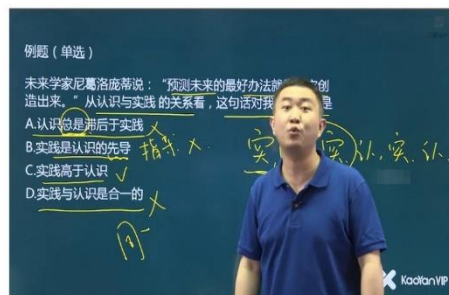 例题（单选）
未来学家尼葛洛庞蒂说：“预测未来的最好办法就
创
造出来。”从认识与实践的关系看，这句话对我
是
A.认识总是滞后于实践 ×
B.实践是认识的先导 指导 ×
实 实 认 实 认
C.实践高于认识 √
D.实践与认识是合一的 ×
同一
KaoYanVIP